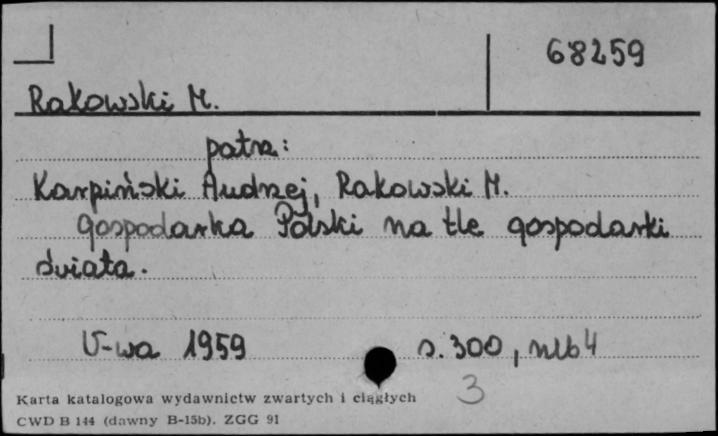 68259
Rakowski M.
patrz:
Karpiński Andrzej, Rakowski M.
Gospodarka Polski na tle gospodarki
świata.
W-wa 1959 s. 300, nlb 4
3
Karta katalogowa wydawnictw zwartych i ciągłych
CWD B 144 (dawny B-15b). ZGG 91